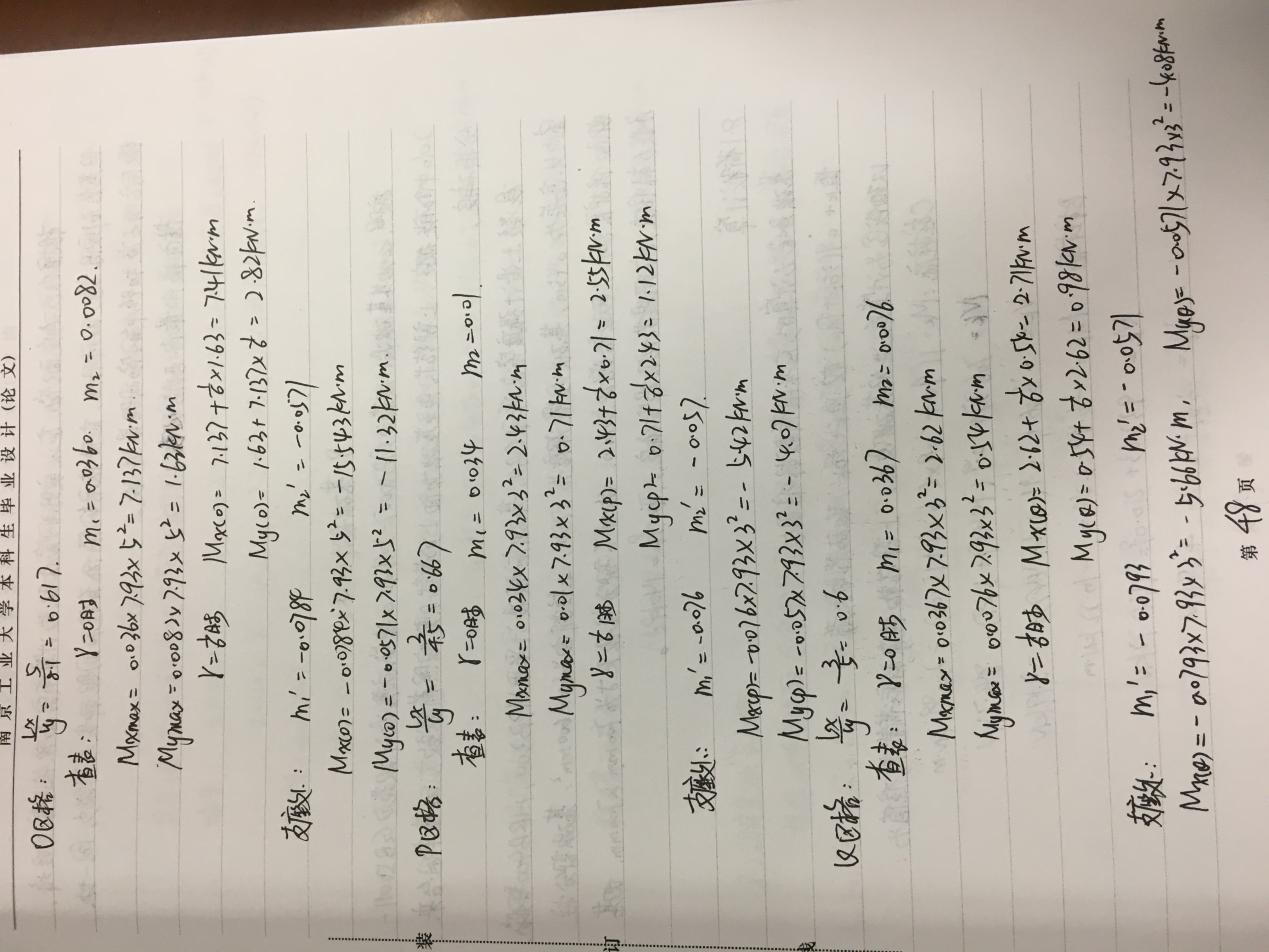 南京工业大学本科生毕业设计(论文)
O区格: Lx/Ly = 5/8.1 = 0.617.
查表: γ=0时 m1=0.0360. m2=0.0082.
Mxmax = 0.036×7.93×5²=7.137kN·m
Mymax=0.0082×7.93×5²=1.63kN·m
γ=1/6时 Mx(O)=7.137+1/6×1.63=7.41kN·m
My(O)=1.63+7.137×1/6=2.82kN·m.
支座处: m1'=-0.0784 m2'=-0.0571
Mx(O)=-0.0784×7.93×5²=-15.543kN·m
My(O)=-0.0571×7.93×5²=-11.32kN·m.
P区格: Lx/Ly = 3/4.5 = 0.667
查表: γ=0时 m1=0.034 m2=0.01
Mxmax=0.034×7.93×3²=2.43kN·m
Mymax=0.01×7.93×3²=0.71kN·m
γ=1/6时 Mx(P)=2.43+1/6×0.71=2.55kN·m
My(P)=0.71+1/6×2.43=1.12kN·m
支座处: m1'=-0.076 m2'=-0.057.
Mx(P)=-0.076×7.93×3²=-5.42kN·m
My(P)=-0.057×7.93×3²=-4.07kN·m
Q区格: Lx/Ly = 3/5 = 0.6
查表: γ=0时 m1=0.0367 m2=0.0076
Mxmax=0.0367×7.93×3²=2.62kN·m
Mymax=0.0076×7.93×3²=0.54kN·m
γ=1/6时 Mx(Q)=2.62+1/6×0.54=2.71kN·m
My(Q)=0.54+1/6×2.62=0.98kN·m
支座处: m1'=-0.0793 m2'=-0.0571
Mx(Q)=-0.0793×7.93×3²=-5.66kN·m, My(Q)=-0.0571×7.93×3²=-4.08kN·m
第 48 页
装
订
线